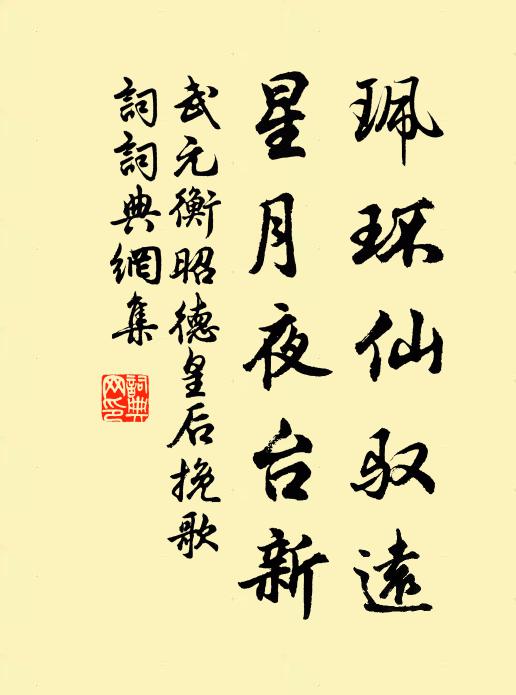 珮环仙驭遠
星月夜台新
武元衡昭德皇后挽歌
詞詞典網集
詞典網印